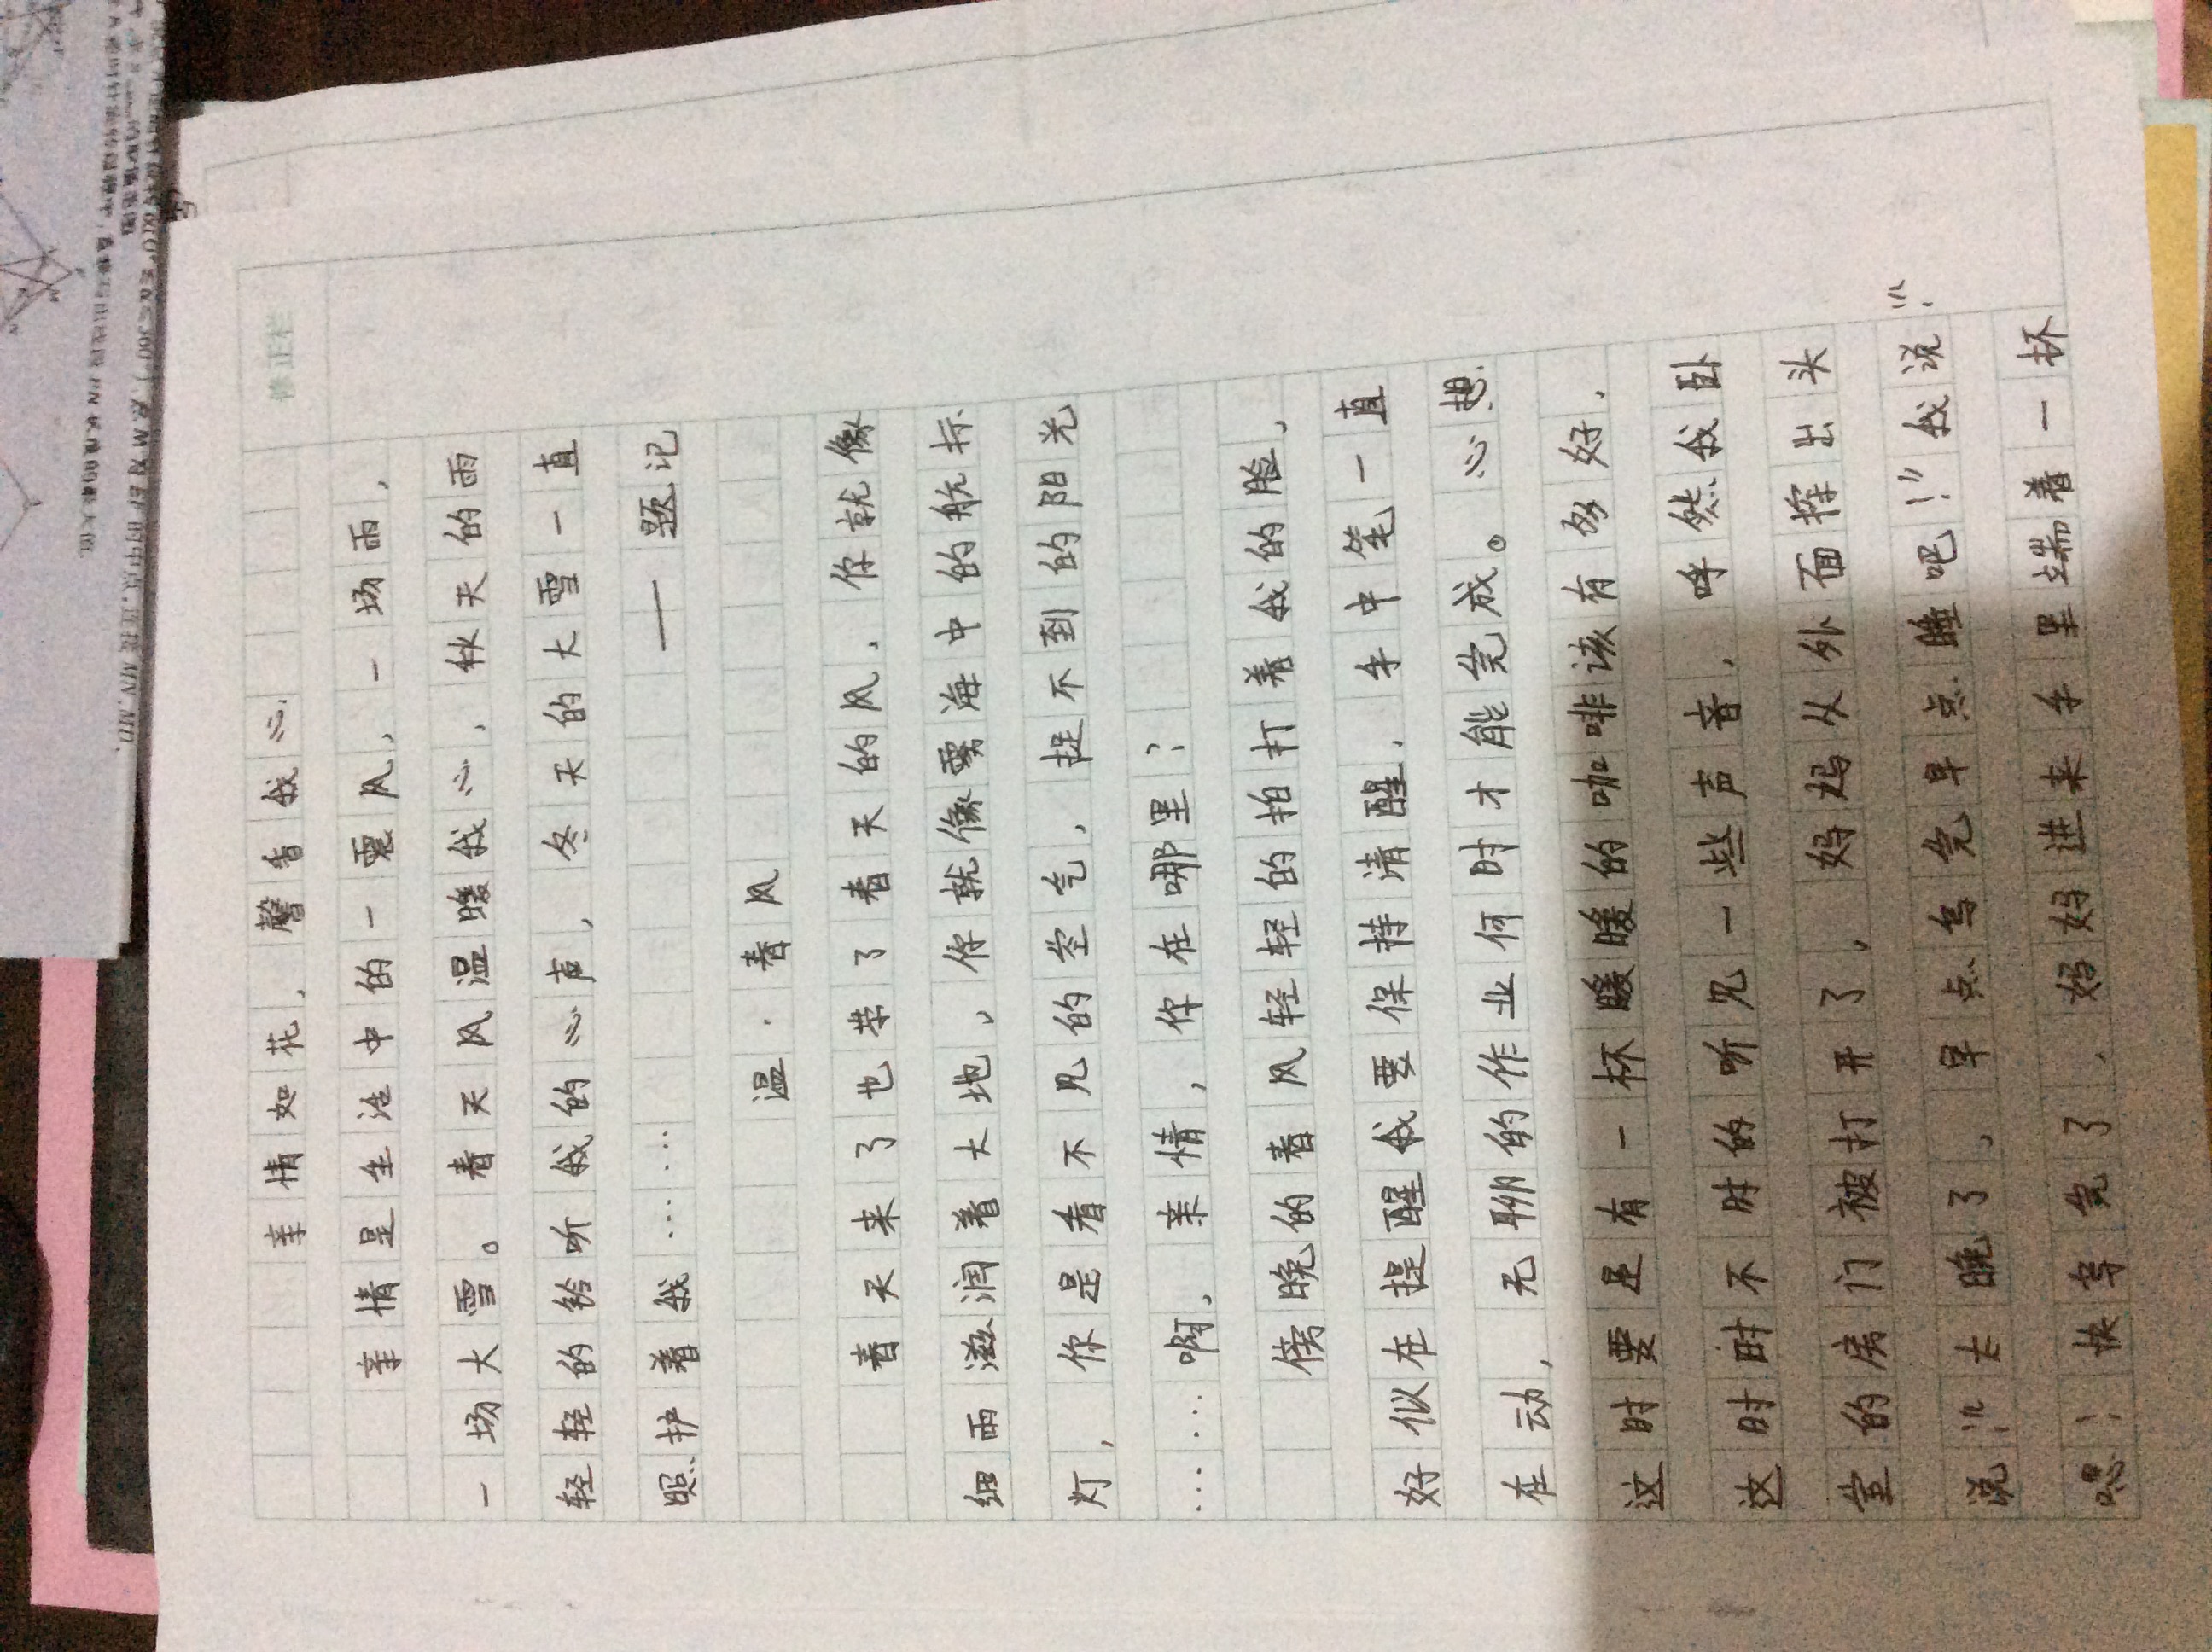 亲情如花，馨香我心
亲情是生活中的一震风，一场雨，
一场大雪。春天风温暖我心，秋天的雨
轻轻的铃听我的心声，冬天的大雪一直
照护着我…… ——题记
温·春风
春天来了也带了春天的风，你就像
细雨滋润着大地，你就像雾海中的航标
灯，你是看不见的空气，捉不到的阳光
……啊，亲情，你在哪里？
傍晚的春风轻轻的拍打着我的脸，
好似在提醒我要保持清醒，手中笔一直
在动，无聊的作业何时才能完成。心想
这时要是有一杯暖暖的咖啡该有多好，
这时时不时的听见一些声音，呼然我卧
室的房门被打开了，妈妈从外面探出头
说：“太晚了，早点写完早点睡吧！”我说：“
嗯！快写完了，妈妈进来手里端着一杯
修正栏